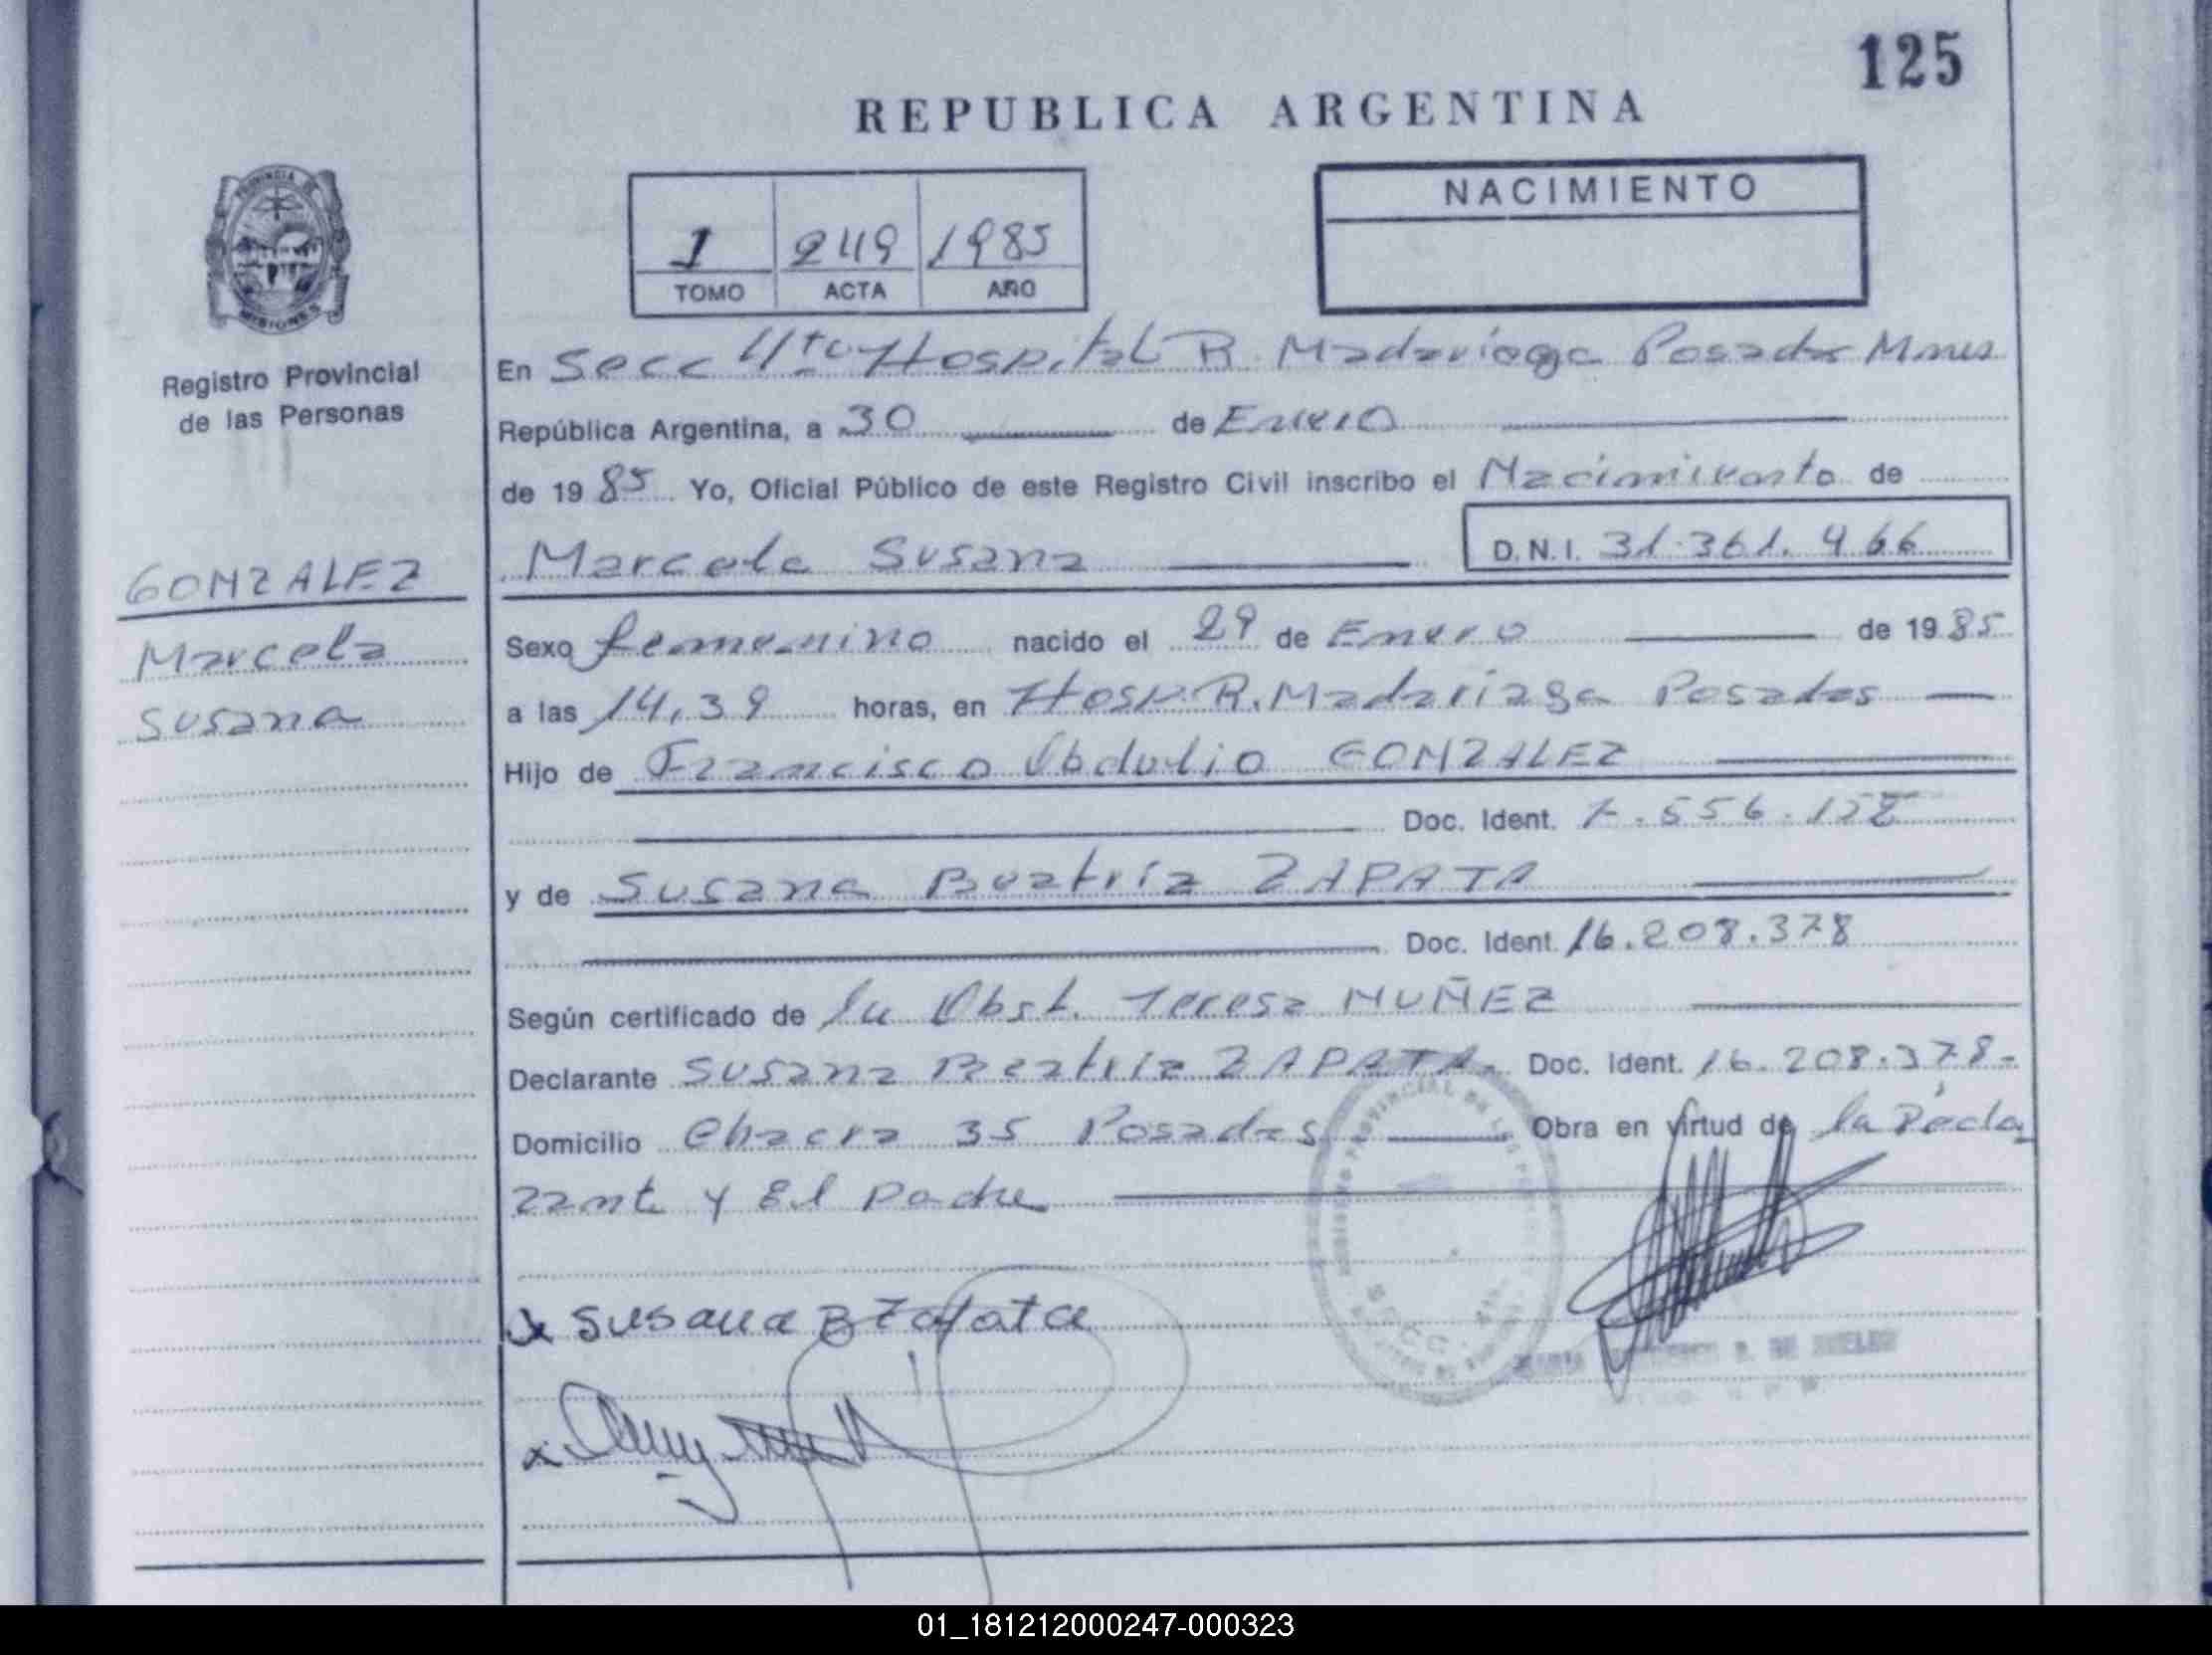 125
REPUBLICA ARGENTINA
PROVINCIA DE
MISIONES
Registro Provincial
de las Personas
1 249 1985
TOMO ACTA AÑO
NACIMIENTO
En Secc 4ta Hospital R. Madariaga Posadas Mnes
República Argentina, a 30 de Enero
de 1985 Yo, Oficial Público de este Registro Civil inscribo el Nacimiento de
Marcela Susana D.N.I. 31.361.466
GONZALEZ
Marcela
Susana
Sexo femenino nacido el 29 de Enero de 1985
a las 14,39 horas, en Hosp. R. Madariaga Posadas
Hijo de Francisco Obdulio GONZALEZ
Doc. Ident. 7.556.158
y de Susana Beatriz ZAPATA
Doc. Ident. 16.208.378
Según certificado de la Obst. Teresa NUÑEZ
Declarante Susana Beatriz ZAPATA. Doc. Ident. 16.208.378.-
Domicilio Chacra 35 Posadas Obra en virtud de la Decla
rante y El padre
x Susana B Zapata
x
01_181212000247-000323